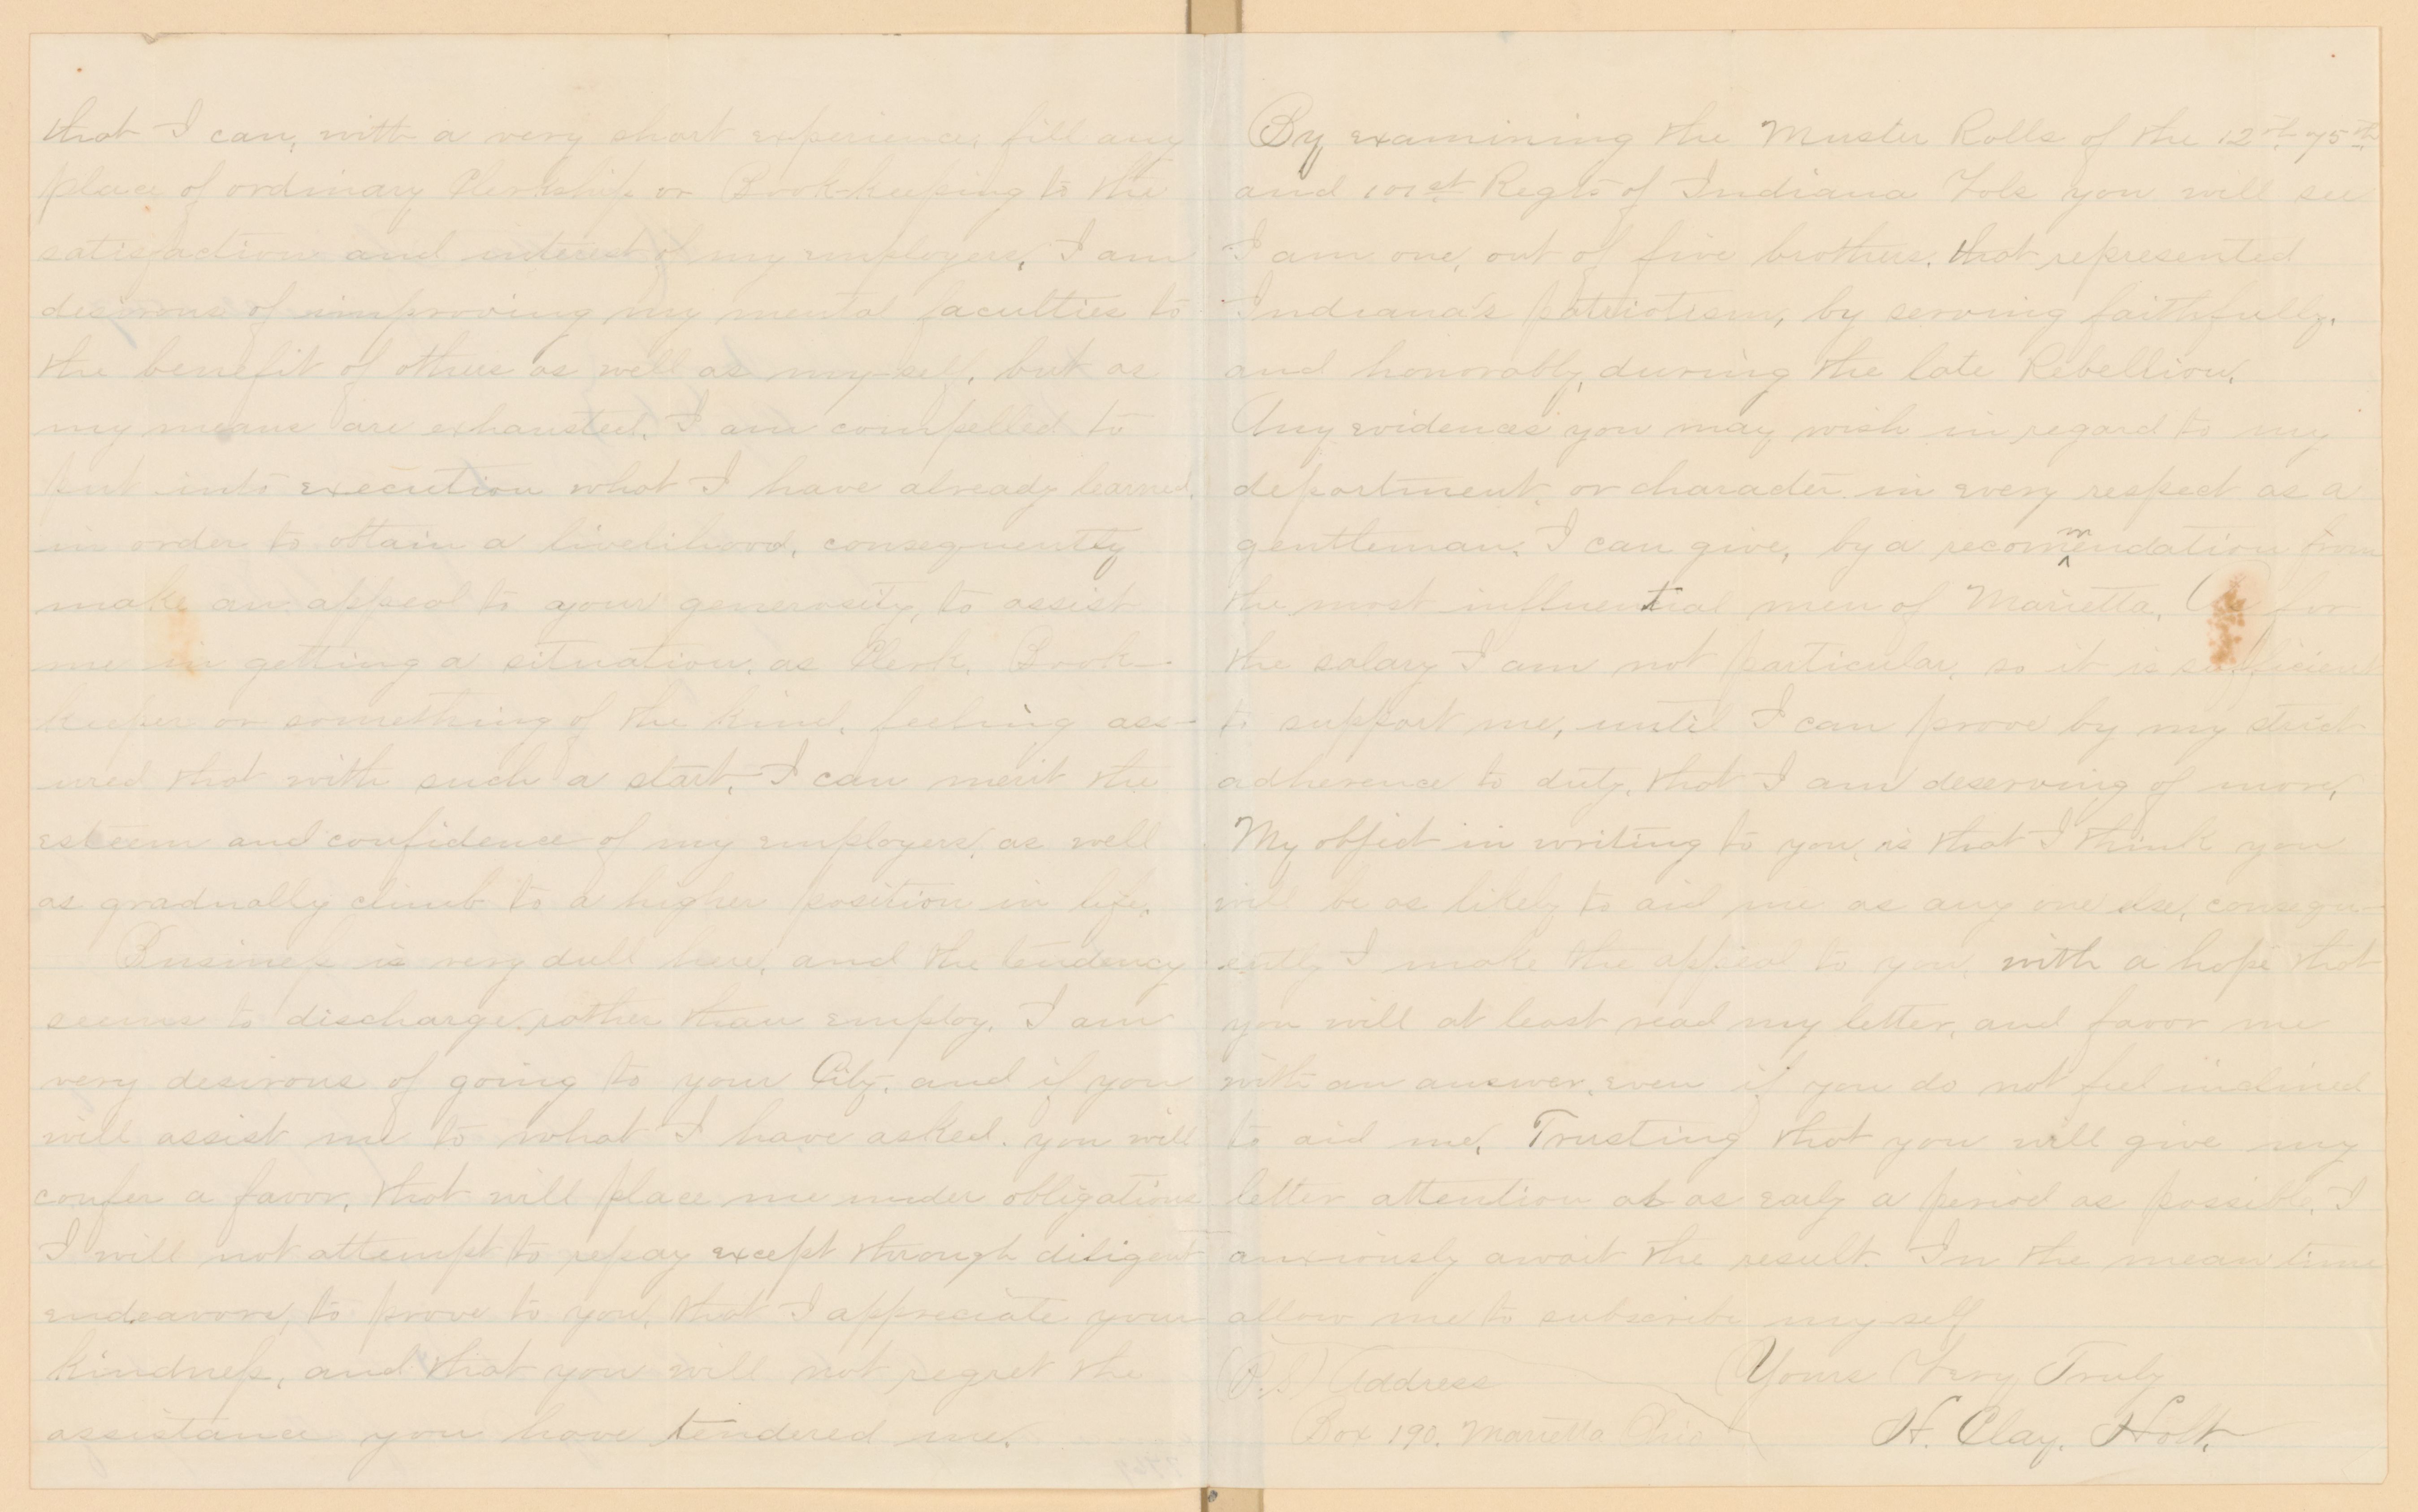 that I can, with a very short experience, fill any
place of ordinary Clerkship or Book-keeping to the
satisfaction and interest of my employers. I am
desirous of improving my mental faculties to
the benefit of others as well as my-self, but as
my means are exhausted, I am compelled to
put into execution what I have already learned,
in order to obtain a livelihood, consequently
make an appeal to your generosity, to assist
me in getting a situation, as Clerk, Book-
keeper or something of the kind, feeling ass-
ured that with such a start, I can merit the
esteem and confidence of my employers, as well
as gradually climb to a higher position in life.
Business is very dull here, and the tendency
seems to discharge, rather than employ. I am
very desirous of going to your City, and if you
will assist me to what I have asked, you will
confer a favor, that will place me under obligations
I will not attempt to repay except through diligent
endeavors, to prove to you, that I appreciate your
kindness, and that you will not regret the
assistance you have tendered me.
By examining the Muster Rolls of the 12th, 75th,
and 101st Regts of Indiana Vols you will see
I am one, out of five brothers, that represented
Indiana's patriotism, by serving faithfully,
and honorably, during the late Rebellion.
Any evidences you may wish in regard to my
department, or character in every respect as a
gentleman, I can give, by a recommendation from
the most influential men of Marietta. As for
the salary I am not particular, so it is sufficient
to support me, until I can prove by my strict
adherence to duty, that I am deserving of more.
My object in writing to you, is that I think you
will be as likely to aid me as any one else, consequ-
ently I make the appeal to you, with a hope that
you will at least read my letter, and favor me
with an answer, even if you do not feel inclined
to aid me. Trusting that you will give my
letter attention at as early a period as possible, I
anxiously await the result. In the mean time
allow me to subscribe my-self
Yours Very Truly
H. Clay. Holt.
(P.S.) Address
Box 190. Marietta Ohio